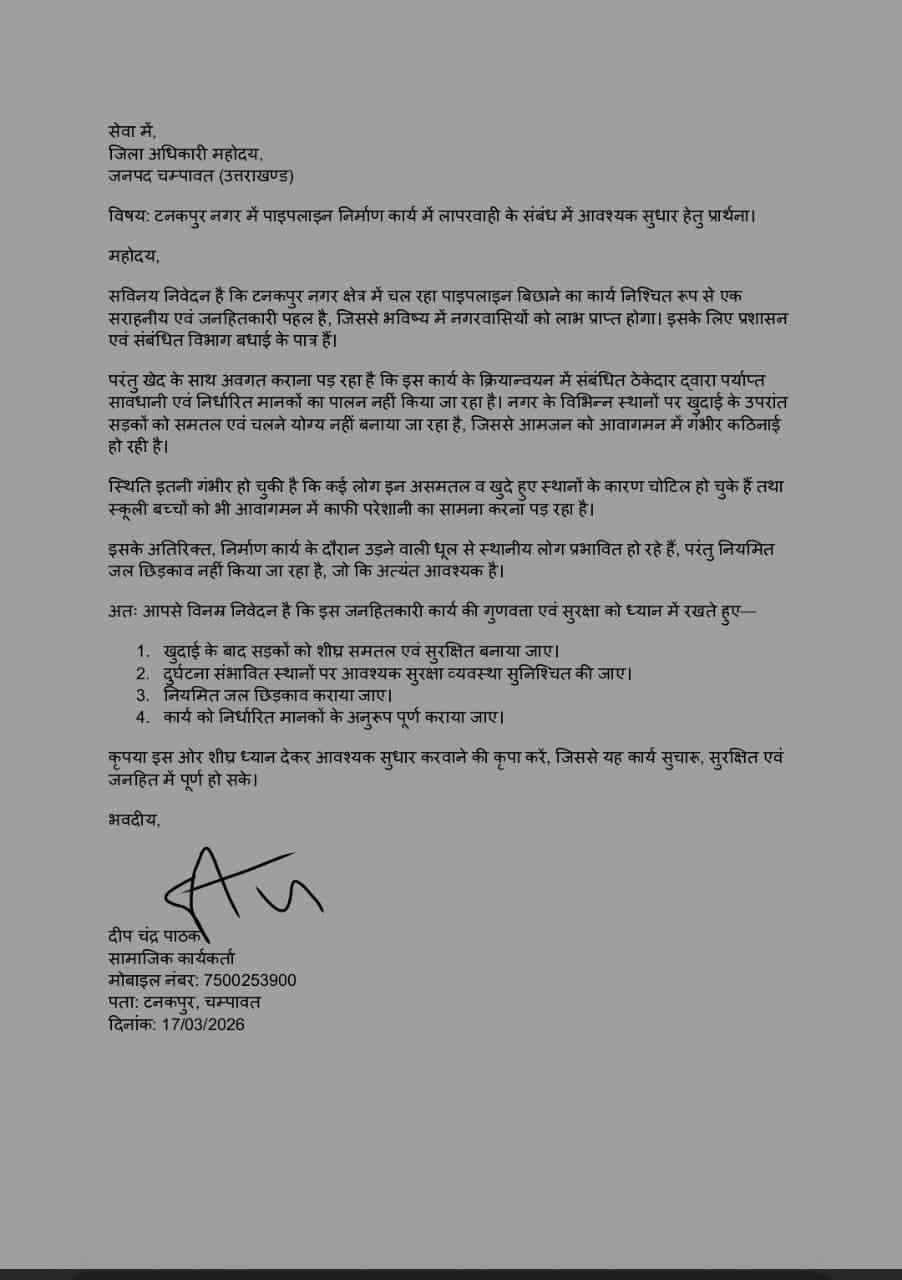 सेवा में,
जिला अधिकारी महोदय,
जनपद चम्पावत (उत्तराखण्ड)
विषय: टनकपुर नगर में पाइपलाइन निर्माण कार्य में लापरवाही के संबंध में आवश्यक सुधार हेतु प्रार्थना।
महोदय,
सविनय निवेदन है कि टनकपुर नगर क्षेत्र में चल रहा पाइपलाइन बिछाने का कार्य निश्चित रूप से एक
सराहनीय एवं जनहितकारी पहल है, जिससे भविष्य में नगरवासियों को लाभ प्राप्त होगा। इसके लिए प्रशासन
एवं संबंधित विभाग बधाई के पात्र हैं।
परंतु खेद के साथ अवगत कराना पड़ रहा है कि इस कार्य के क्रियान्वयन में संबंधित ठेकेदार द्वारा पर्याप्त
सावधानी एवं निर्धारित मानकों का पालन नहीं किया जा रहा है। नगर के विभिन्न स्थानों पर खुदाई के उपरांत
सड़कों को समतल एवं चलने योग्य नहीं बनाया जा रहा है, जिससे आमजन को आवागमन में गंभीर कठिनाई
हो रही है।
स्थिति इतनी गंभीर हो चुकी है कि कई लोग इन असमतल व खुदे हुए स्थानों के कारण चोटिल हो चुके हैं तथा
स्कूली बच्चों को भी आवागमन में काफी परेशानी का सामना करना पड़ रहा है।
इसके अतिरिक्त, निर्माण कार्य के दौरान उड़ने वाली धूल से स्थानीय लोग प्रभावित हो रहे हैं, परंतु नियमित
जल छिड़काव नहीं किया जा रहा है, जो कि अत्यंत आवश्यक है।
अतः आपसे विनम्र निवेदन है कि इस जनहितकारी कार्य की गुणवत्ता एवं सुरक्षा को ध्यान में रखते हुए—
1. खुदाई के बाद सड़कों को शीघ्र समतल एवं सुरक्षित बनाया जाए।
2. दुर्घटना संभावित स्थानों पर आवश्यक सुरक्षा व्यवस्था सुनिश्चित की जाए।
3. नियमित जल छिड़काव कराया जाए।
4. कार्य को निर्धारित मानकों के अनुरूप पूर्ण कराया जाए।
कृपया इस ओर शीघ्र ध्यान देकर आवश्यक सुधार करवाने की कृपा करें, जिससे यह कार्य सुचारू, सुरक्षित एवं
जनहित में पूर्ण हो सके।
भवदीय,
दीप चंद्र पाठक
सामाजिक कार्यकर्ता
मोबाइल नंबर: 7500253900
पता: टनकपुर, चम्पावत
दिनांक: 17/03/2026